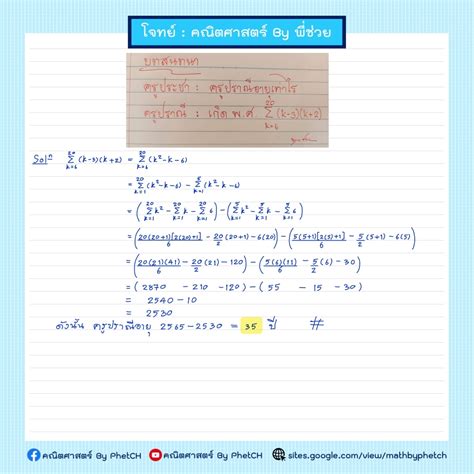 โจทย์ : คณิตศาสตร์ By พี่ช่วย
บทสนทนา
ครูประชา : ครูปราณีอายุเท่าไร
ครูปราณี : เกิด พ.ศ. 20∑k=6 (k-3)(k+2)
Solⁿ 20∑k=6 (k-3)(k+2) = 20∑k=6 (k²-k-6)
= 20∑k=1 (k²-k-6) - 5∑k=1 (k²-k-6)
= (20∑k=1 k² - 20∑k=1 k - 20∑k=1 6) - (5∑k=1 k² - 5∑k=1 k - 5∑k=1 6)
= (20(20+1)[2(20)+1]/6 - 20/2 (20+1) - 6(20)) - (5(5+1)[2(5)+1]/6 - 5/2 (5+1) - 6(5))
= (20(21)(41)/6 - 20/2 (21) - 120) - (5(6)(11)/6 - 5/2 (6) - 30)
= (2870 - 210 - 120) - (55 - 15 - 30)
= 2540 - 10
= 2530
ดังนั้น ครูปราณีอายุ 2565-2530 = 35 ปี #
คณิตศาสตร์ By PhetCH คณิตศาสตร์ By PhetCH sites.google.com/view/mathbyphetch